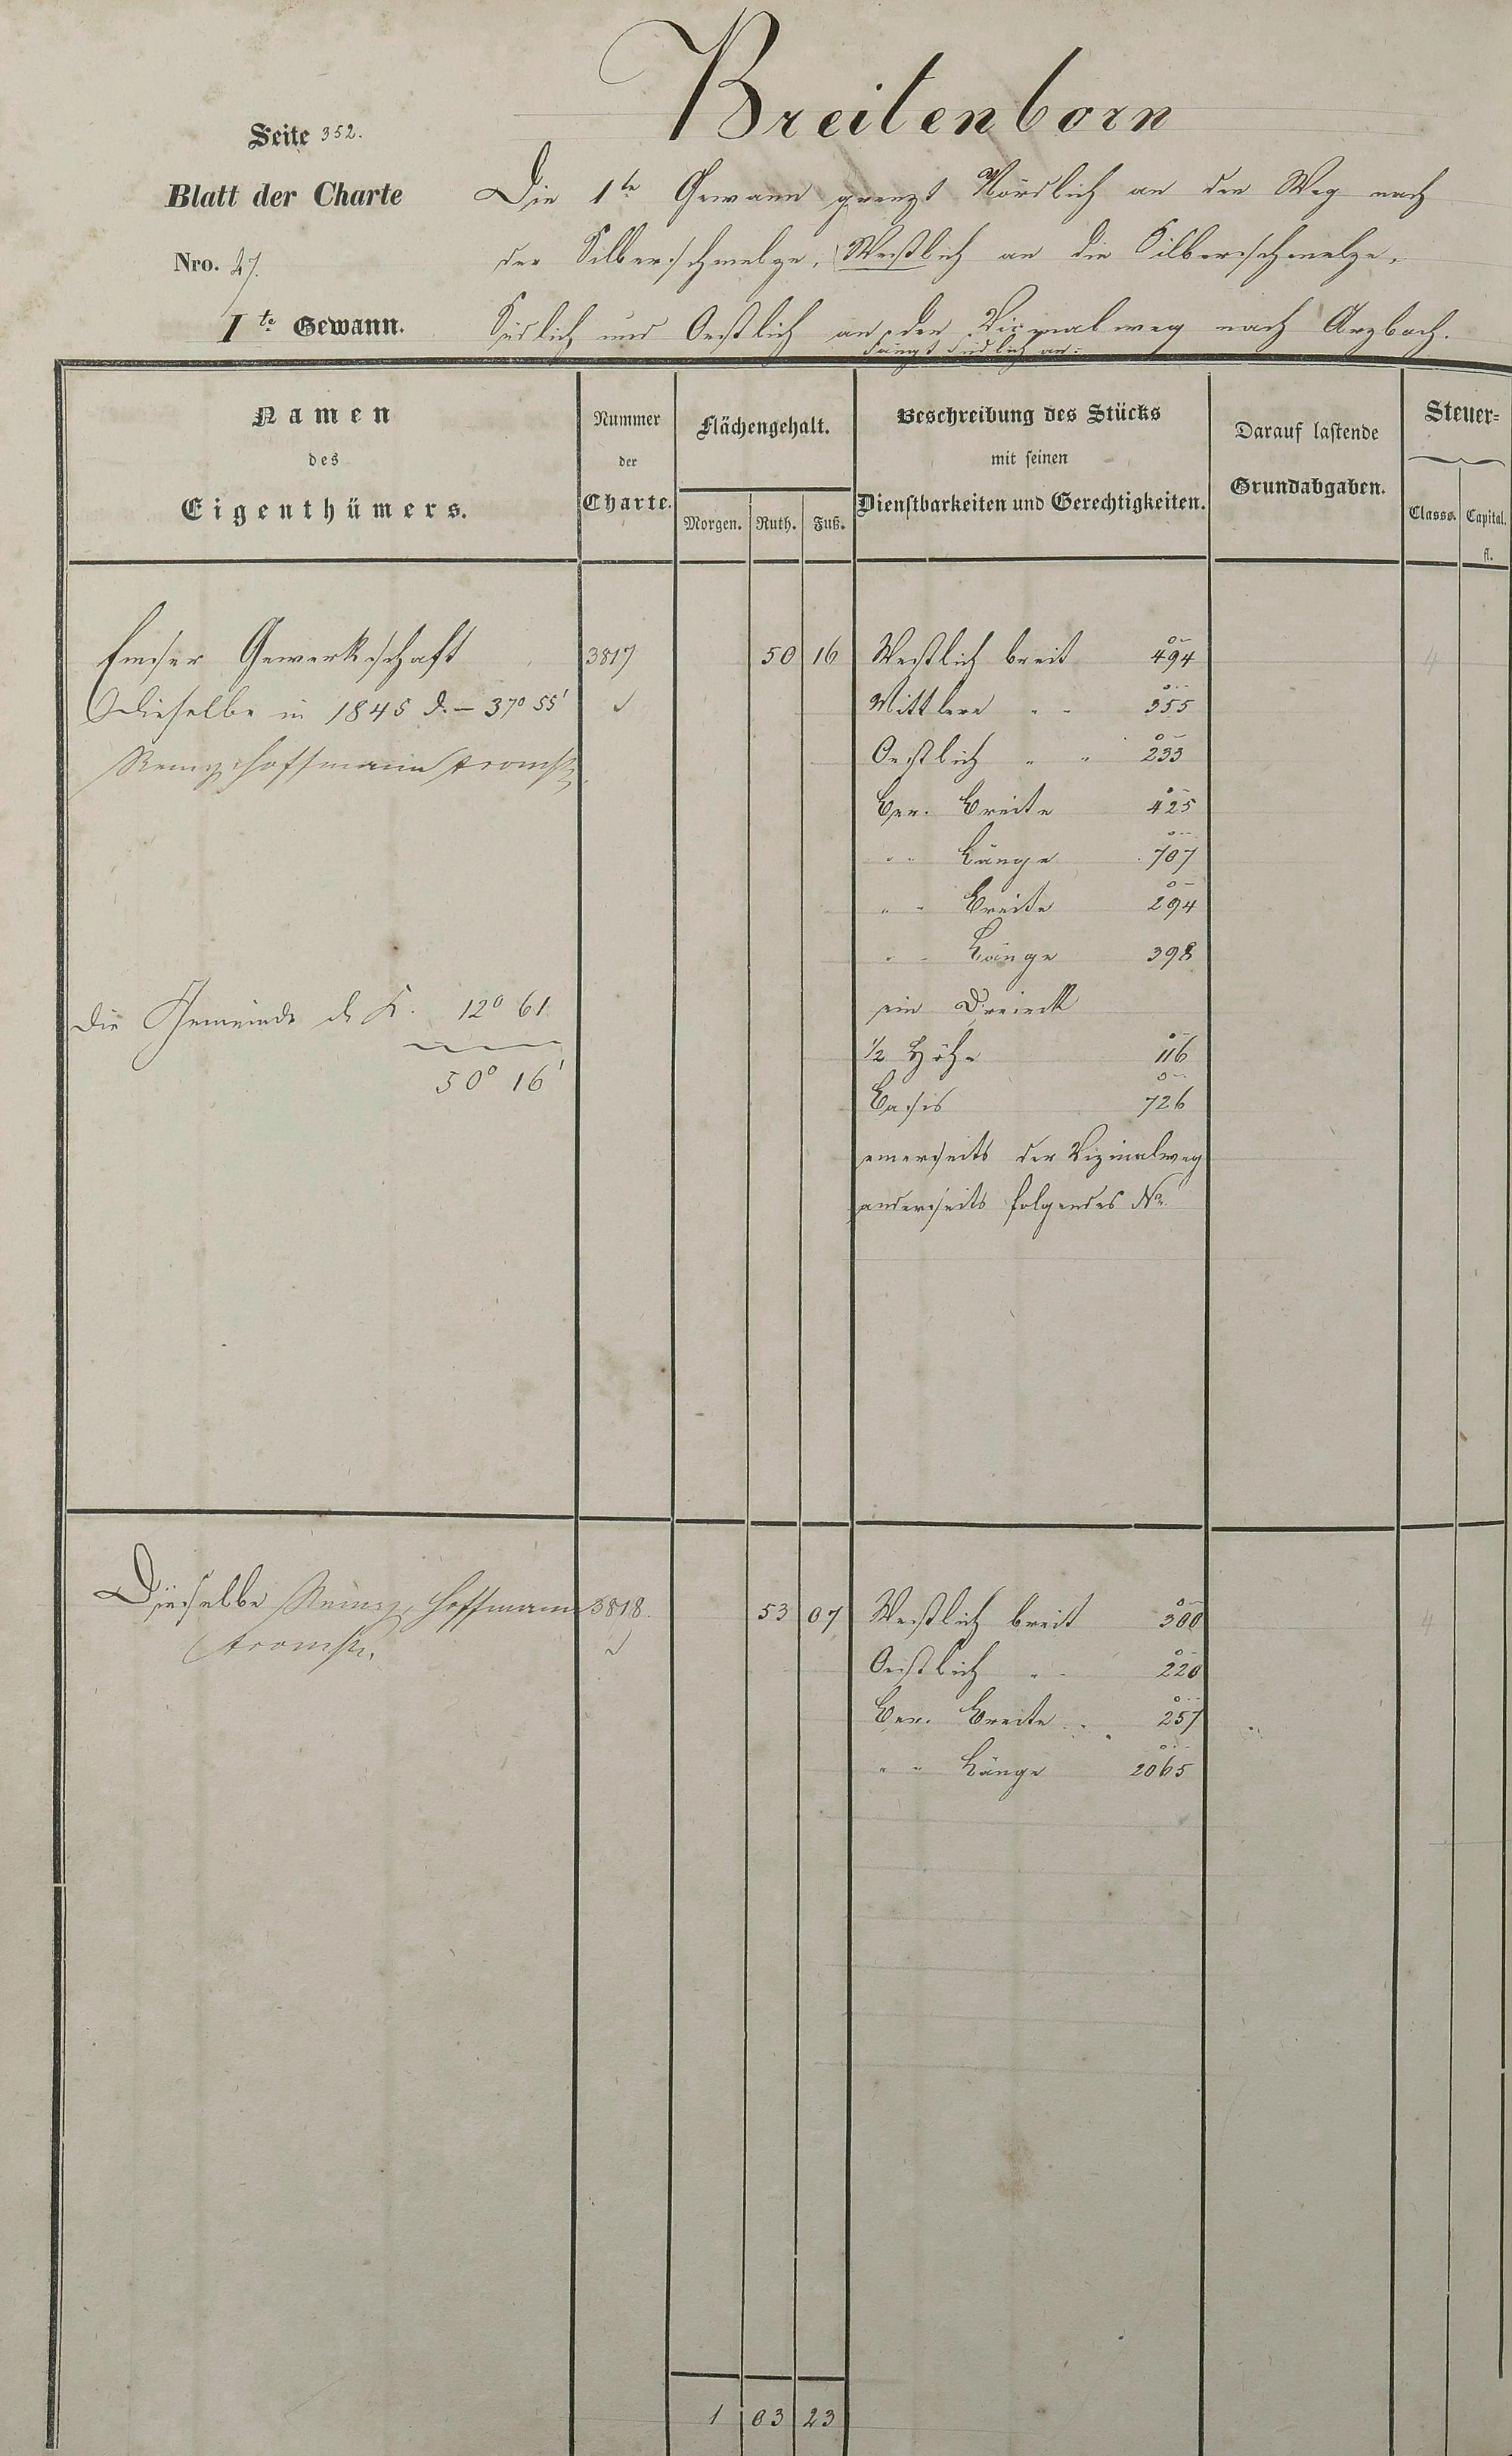 Breitenborn
Seite 352.
Blatt der Charte
Nro. 27.
I te Gewann.
Die 1te Gewann grenzt Nördlich an den Weg nach
der Silberschmelze, Westlich an die Silberschmelze,
Südlich und Oestlich an den Vizinalweg nach Arzbach.
Fängt südlich an:
Namen
des
Eigenthümers.
Nummer
der
Charte.
Flächengehalt.
Morgen. Ruth. Fuß.
Beschreibung des Stücks
mit seinen
Dienstbarkeiten und Gerechtigkeiten.
Darauf lastende
Grundabgaben.
Steuer=
Classe. Capital.
fl.
Emser Gewerkschaft 3817 50 16 Westlich breit 494 4
Dieselbe in 1845 d. – 37° 55' Mittlere " " 355
Remy Hoffmann
Oestlich " " 233
Ber. Breite 425
" " Länge 707
" " Breite 294
" " Länge 398
Die Gemeinde 12° 61
50° 16'
ein Dreieck
1/2 Höhe 116
Basis 726
einerseits der Vizinalweg
anderseits folgendes No.
Dieselbe Remy, Hoffmann 3818. 53 07 Westlich breit 300 4
Oestlich " 220
Ber. Breite 257
" " Länge 2065
1 03 23